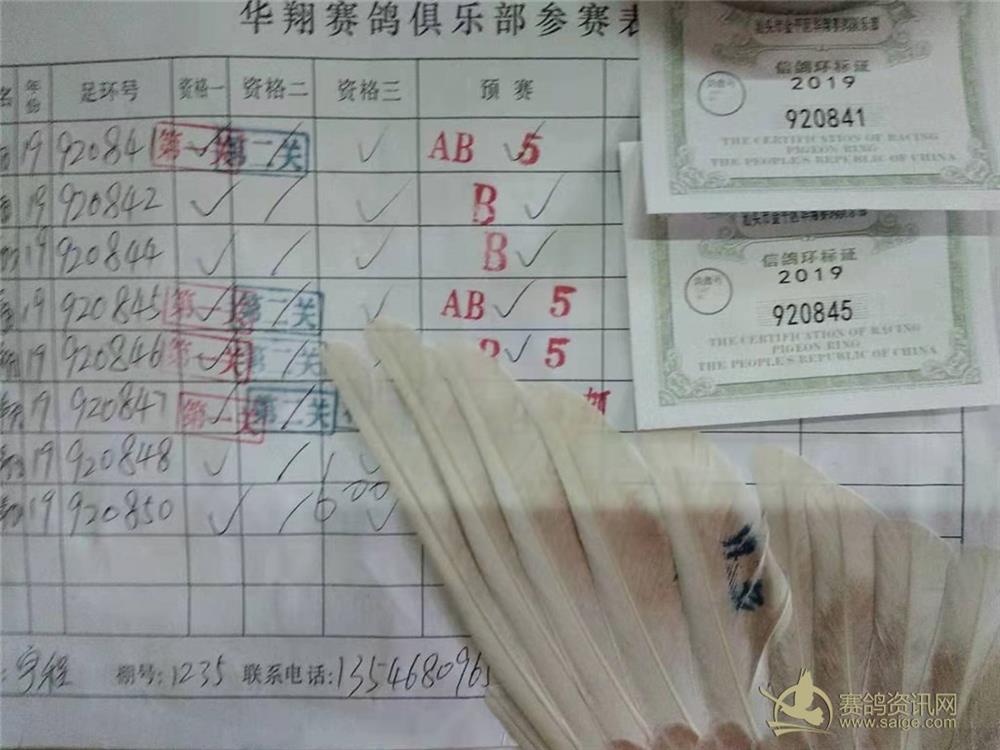 华翔赛鸽俱乐部参赛表
名 年份 足环号 资格一 资格二 资格三 预赛
19 920841 第一关 第二关 AB 5
19 920842 B
19 920844 B
19 920845 第一关 第二关 AB 5
19 920846 第一关 第二关 5
19 920847 第一关 第二关
19 920848
19 920850 600
棚号:1235 联系电话:1354680965
信鸽环标证
2019
920841
THE CERTIFICATION OF RACING
PIGEON RING
THE PEOPLE'S REPUBLIC OF CHINA
信鸽环标证
2019
920845
THE CERTIFICATION OF RACING
PIGEON RING
THE PEOPLE'S REPUBLIC OF CHINA
赛鸽资讯网
www.saige.com